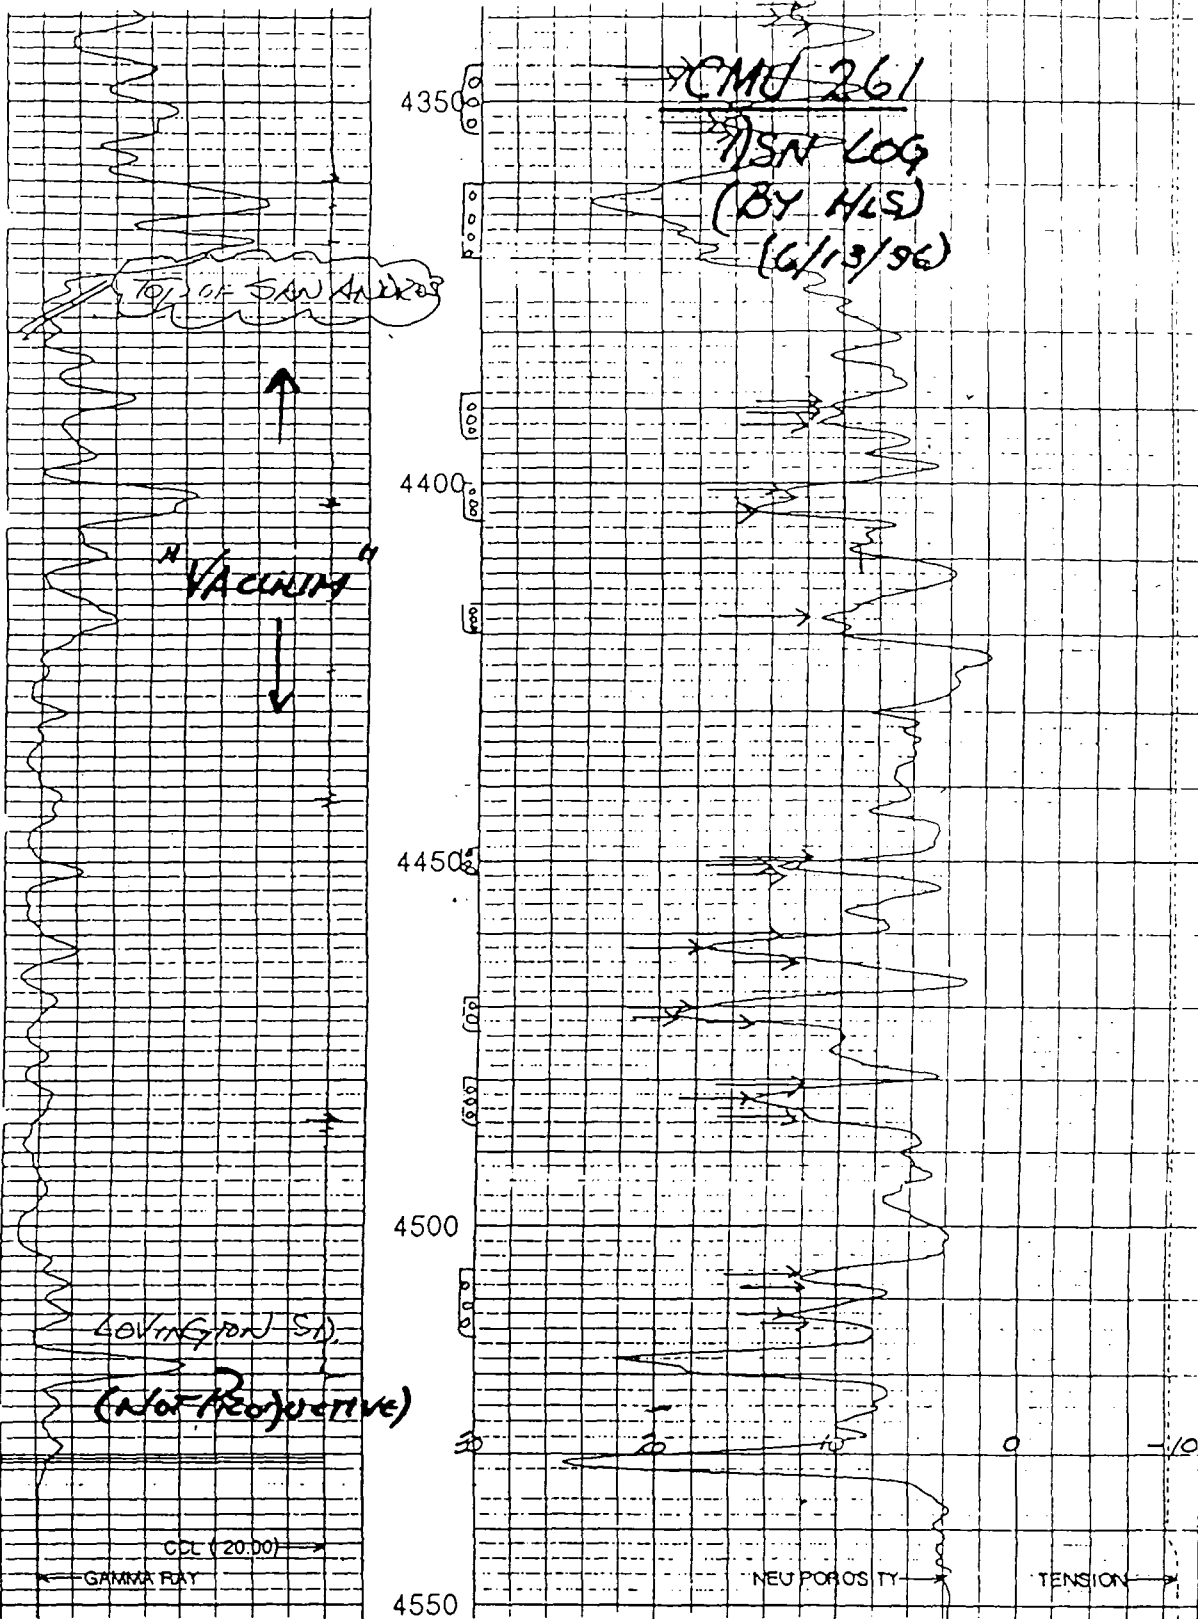 4350
CMU 261
DSN LOG
(BY HLS)
(6/13/96)
TOP OF SAN ANDRES
4400
"VACUUM"
4450
4500
LOVINGTON SD.
(NOT PRODUCTIVE)
30 20 10 0 -10
CCL (20.00)
GAMMA RAY
NEU POROSITY
TENSION
4550